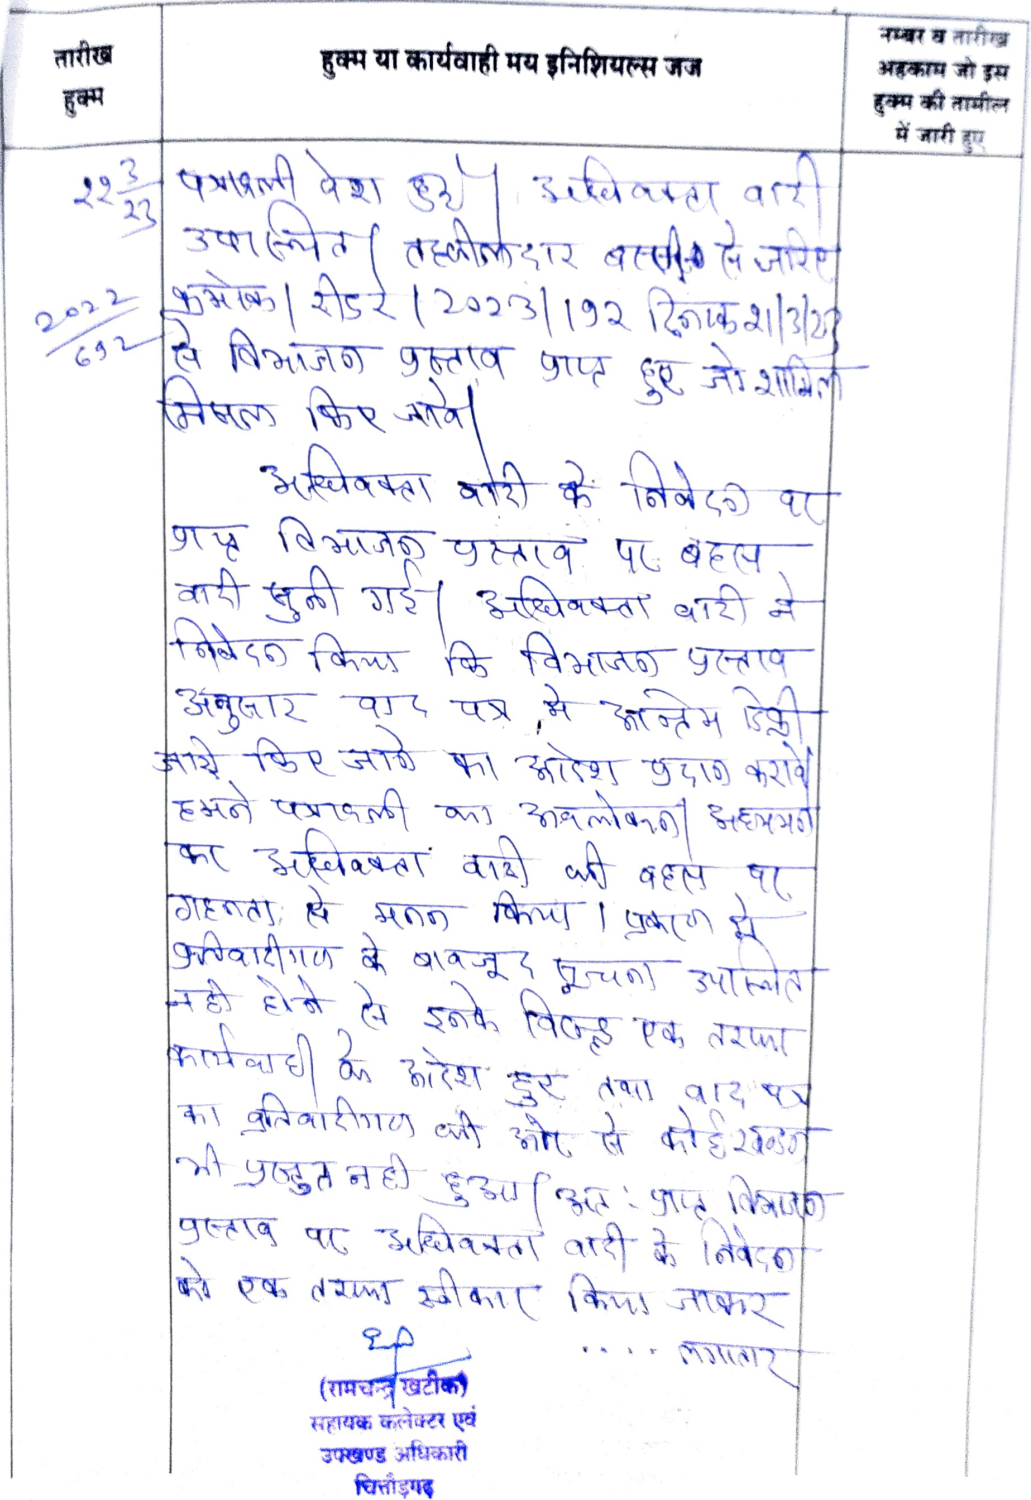 तारीख
हुक्म
हुक्म या कार्यवाही मय इनिशियल्स जज
नम्बर व तारीख
अहकाम जो इस
हुक्म की तामील
में जारी हुए
22 3/23
2022/692
पत्रावली पेश हुई। अधिवक्ता वादी
उपस्थित। तहसीलदार बस्सी से जरिए
क्रमांक/रीडर/2023/192 दिनांक 21/3/23
से विभाजन प्रस्ताव प्राप्त हुए जो शामिल
मिसल किए जावे।
अधिवक्ता वादी के निवेदन पर
प्राप्त विभाजन प्रस्ताव पर बहस
वादी सुनी गई। अधिवक्ता वादी ने
निवेदन किया कि विभाजन प्रस्ताव
अनुसार वाद पत्र में अन्तिम डिक्री
जारी किए जाने का आदेश प्रदान करावें।
हमने पत्रावली का अवलोकन/अध्ययन
कर अधिवक्ता वादी की बहस पर
गहनता से मनन किया। प्रकरण में
प्रतिवादीगण के बावजूद सूचना उपस्थित
नही होने से इनके विरूद्ध एक तरफा
कार्यवाही के आदेश हुए तथा वाद पत्र
का प्रतिवादीगण की ओर से कोई खण्डन
भी प्रस्तुत नही हुआ। अतः प्राप्त विभाजन
प्रस्ताव पर अधिवक्ता वादी के निवेदन
को एक तरफा स्वीकार किया जाकर
..... लगातार
(रामचन्द्र खटीक)
सहायक कलेक्टर एवं
उपखण्ड अधिकारी
चित्तौड़गढ़